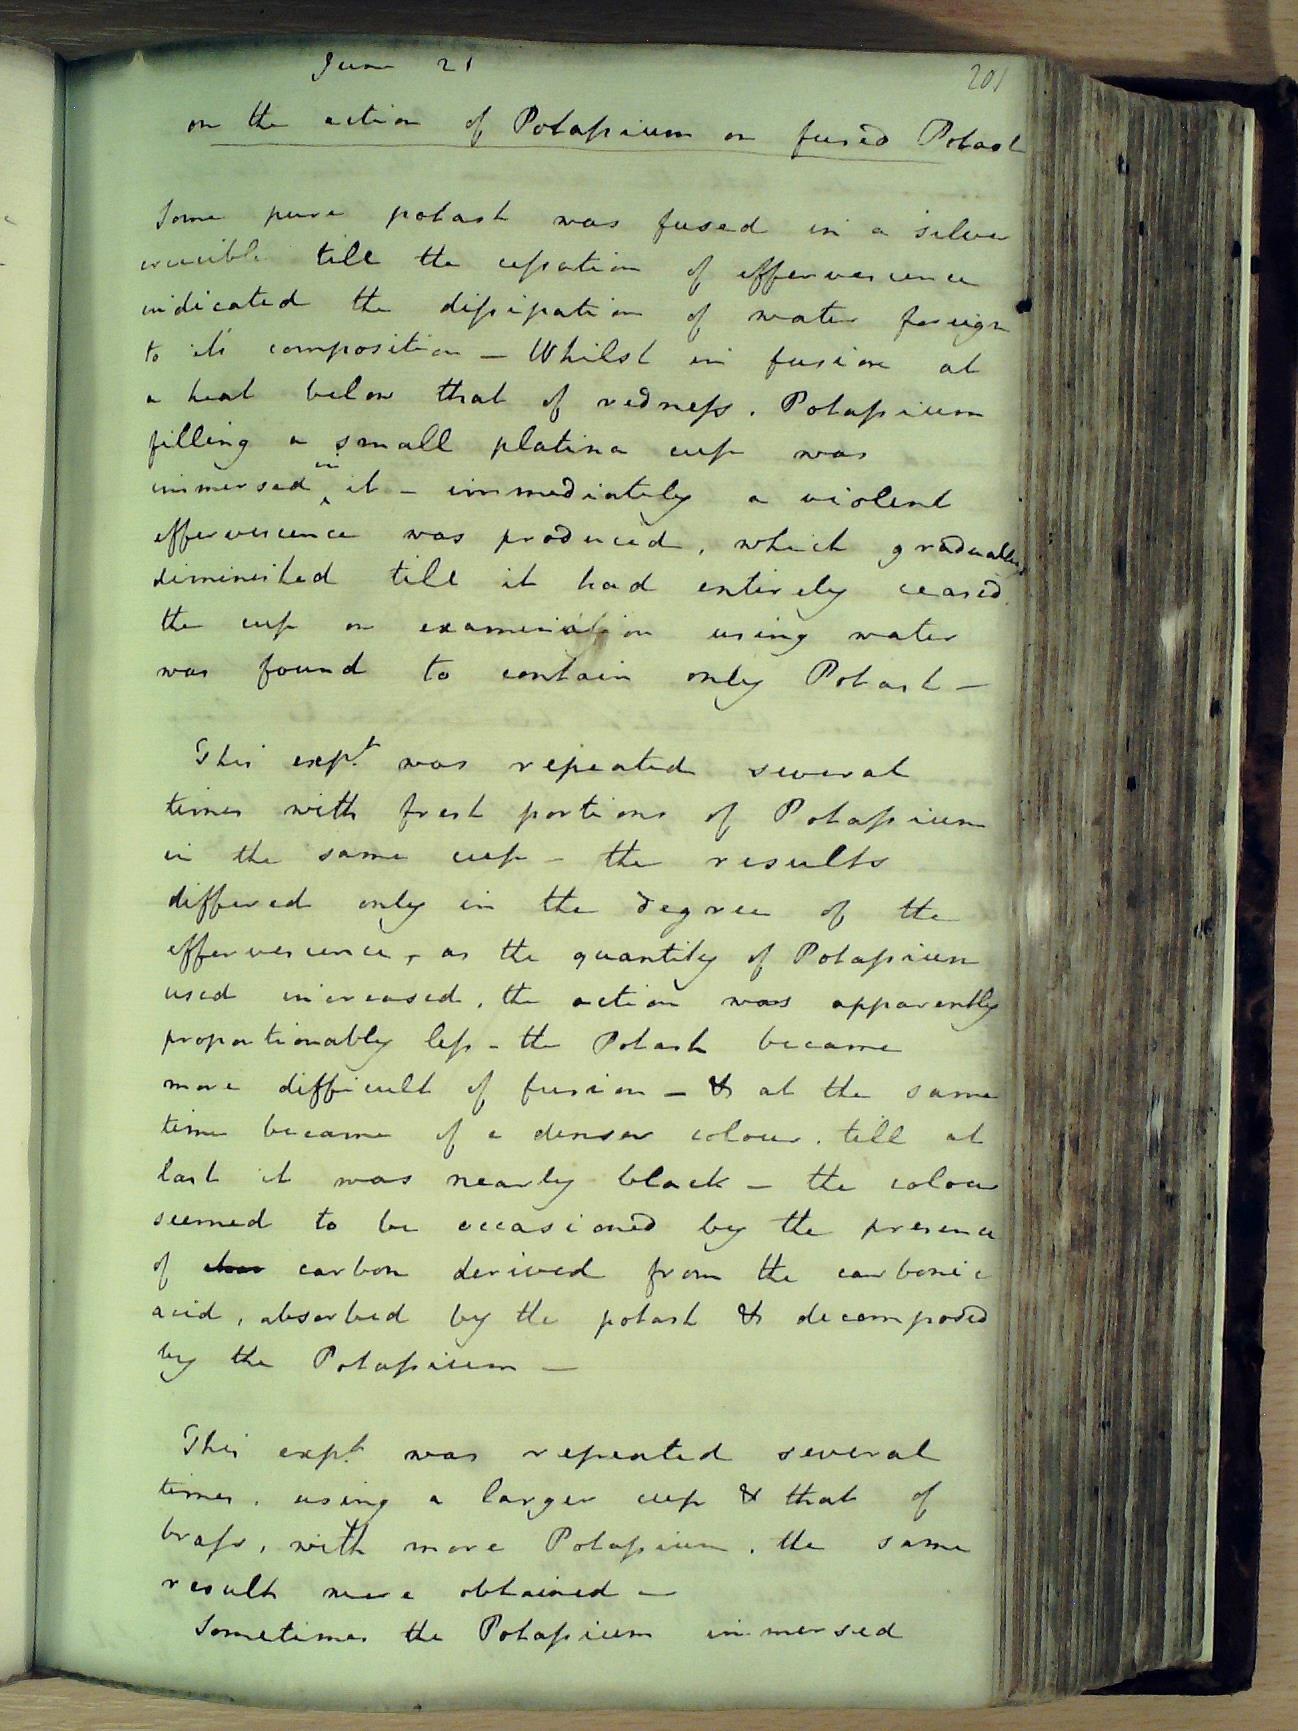 June 21
201
on the action of Potassium on fused Potash
Some pure potash was fused in a silver
crucible till the cessation of effervescence
indicated the dissipation of water foreign
to its composition – Whilst in fusion at
a heat below that of redness. Potassium
filling a small platina cup was
immersed in it – immediately a violent
effervescence was produced, which gradually
diminished till it had entirely ceased.
the cup on examination using water
was found to contain only Potash –
This expt. was repeated several
times with fresh portions of Potassium
in the same cup – the results
differed only in the degree of the
effervescence, as the quantity of Potassium
used increased, the action was apparently
proportionably less – the Potash became
more difficult of fusion – & at the same
time became of a denser colour. till at
last it was nearly black – the colour
seemed to be occasioned by the presence
of carbon derived from the carbonic
acid, absorbed by the potash & decomposed
by the Potassium –
This expt. was repeated several
times, using a larger cup & that of
brass, with more Potassium, the same
results were obtained –
Sometimes the Potassium immersed